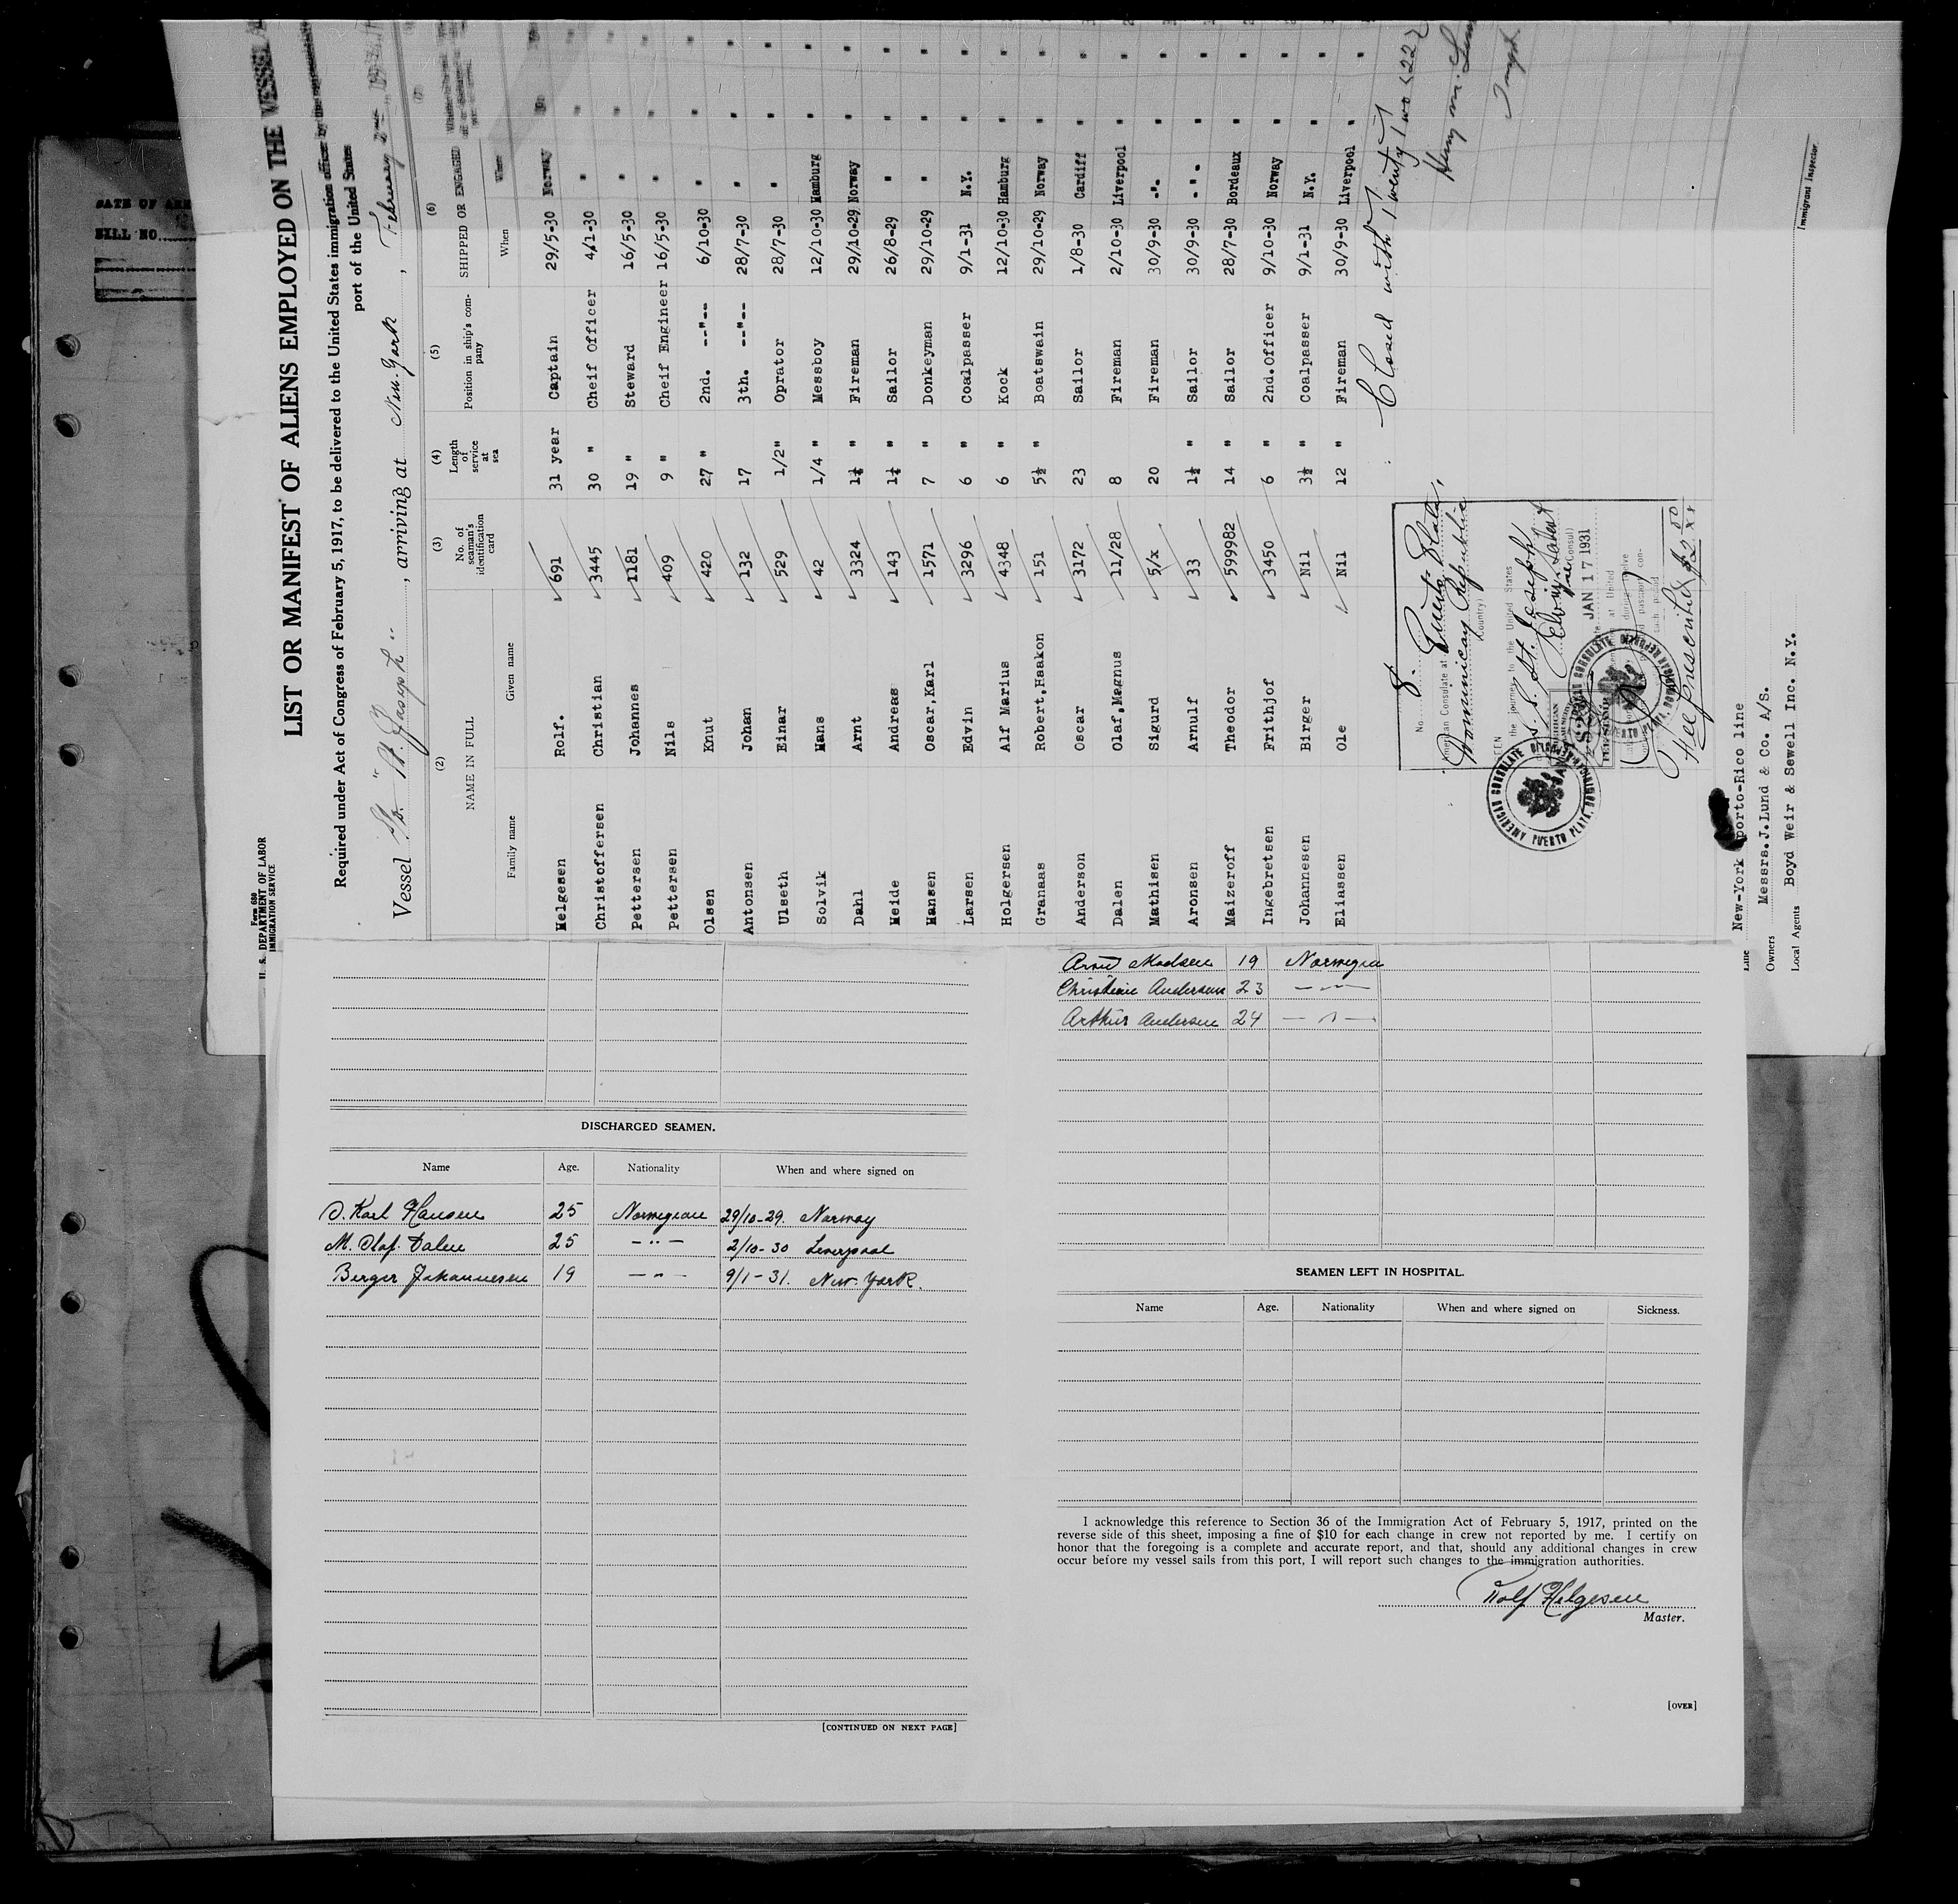 DATE OF
BILL NO.
Form 680
U. S. DEPARTMENT OF LABOR
IMMIGRATION SERVICE
LIST OR MANIFEST OF ALIENS EMPLOYED ON THE VESSEL
Required under Act of Congress of February 5, 1917, to be delivered to the United States immigration officer by the
port of the United States
Vessel S/s. "St. Joseph", arriving at New-York, February 2nd
(2) (3) (4) (5) (6)
NAME IN FULL No. of seaman's identification card Length of service at sea Position in ship's company SHIPPED OR ENGAGED
Family name Given name When Where
Helgesen Rolf. 691 31 year Captain 29/5-30 Norway
Christoffersen Christian 3445 30 " Cheif Officer 4/1-30 "
Pettersen Johannes 1181 19 " Steward 16/5-30 "
Pettersen Nils 409 9 " Cheif Engineer 16/5-30 "
Olsen Knut 420 27 " 2nd. --"-- 6/10-30 "
Antonsen Johan 132 17 3th. --"-- 28/7-30 "
Ulseth Einar 529 1/2" Oprator 28/7-30 "
Solvik Hans 42 1/4 " Messboy 12/10-30 Hamburg
Dahl Arnt 3324 1¼ " Fireman 29/10-29 Norway
Heide Andreas 143 1¼ " Sailor 26/8-29 "
Hansen Oscar,Karl 1571 7 " Donkeyman 29/10-29 "
Larsen Edvin 3296 6 " Coalpasser 9/1-31 N.Y.
Holgersen Alf Marius 4348 6 " Kock 12/10-30 Hamburg
Granaas Robert,Haakon 151 5½ " Boatswain 29/10-29 Norway
Anderson Oscar 3172 23 Sailor 1/8-30 Cardiff
Dalen Olaf,Magnus 11/28 8 Fireman 2/10-30 Liverpool
Mathisen Sigurd 5/x 20 Fireman 30/9-30 -"-
Aronsen Arnulf 33 1½ " Sailor 30/9-30 -"-
Maizeroff Theodor 599982 14 " Sailor 28/7-30 Bordeaux
Ingebretsen Frithjof 3450 6 " 2nd.Officer 9/10-30 Norway
Johannesen Birger Nil 3½ " Coalpasser 9/1-31 N.Y.
Eliassen Ole Nil 12 " Fireman 30/9-30 Liverpool
Closed with Twenty Two (22)
No. 8.
American Consulate at Puerto Plata,
Dominican Republic
(Country)
SEEN
the journey to the United States
S. S. St. Joseph
Vice Consul
JAN 17 1931
AMERICAN CONSULATE
PUERTO PLATA, DOMINICAN REPUBLIC
Fee $2.50
Line New-York porto-Rico line
Owners Messrs.J.Lund & Co. A/S.
Local Agents Boyd Weir & Sewell Inc. N.Y.
Immigrant Inspector
DISCHARGED SEAMEN.
Name Age. Nationality When and where signed on
O. Karl Hansen 25 Norwegian 29/10-29. Norway
M. Olaf. Dalen 25 - " - 2/10-30 Liverpool
Birger Johannesen 19 - " - 9/1-31. New-York.
[CONTINUED ON NEXT PAGE]
Arne Madsen 19 Norwegian
Christian Andersen 23 - " -
Arthur Andersen 24 - " -
SEAMEN LEFT IN HOSPITAL.
Name Age. Nationality When and where signed on Sickness.
I acknowledge this reference to Section 36 of the Immigration Act of February 5, 1917, printed on the
reverse side of this sheet, imposing a fine of $10 for each change in crew not reported by me. I certify on
honor that the foregoing is a complete and accurate report, and that, should any additional changes in crew
occur before my vessel sails from this port, I will report such changes to the immigration authorities.
Rolf Helgesen
Master.
[OVER]